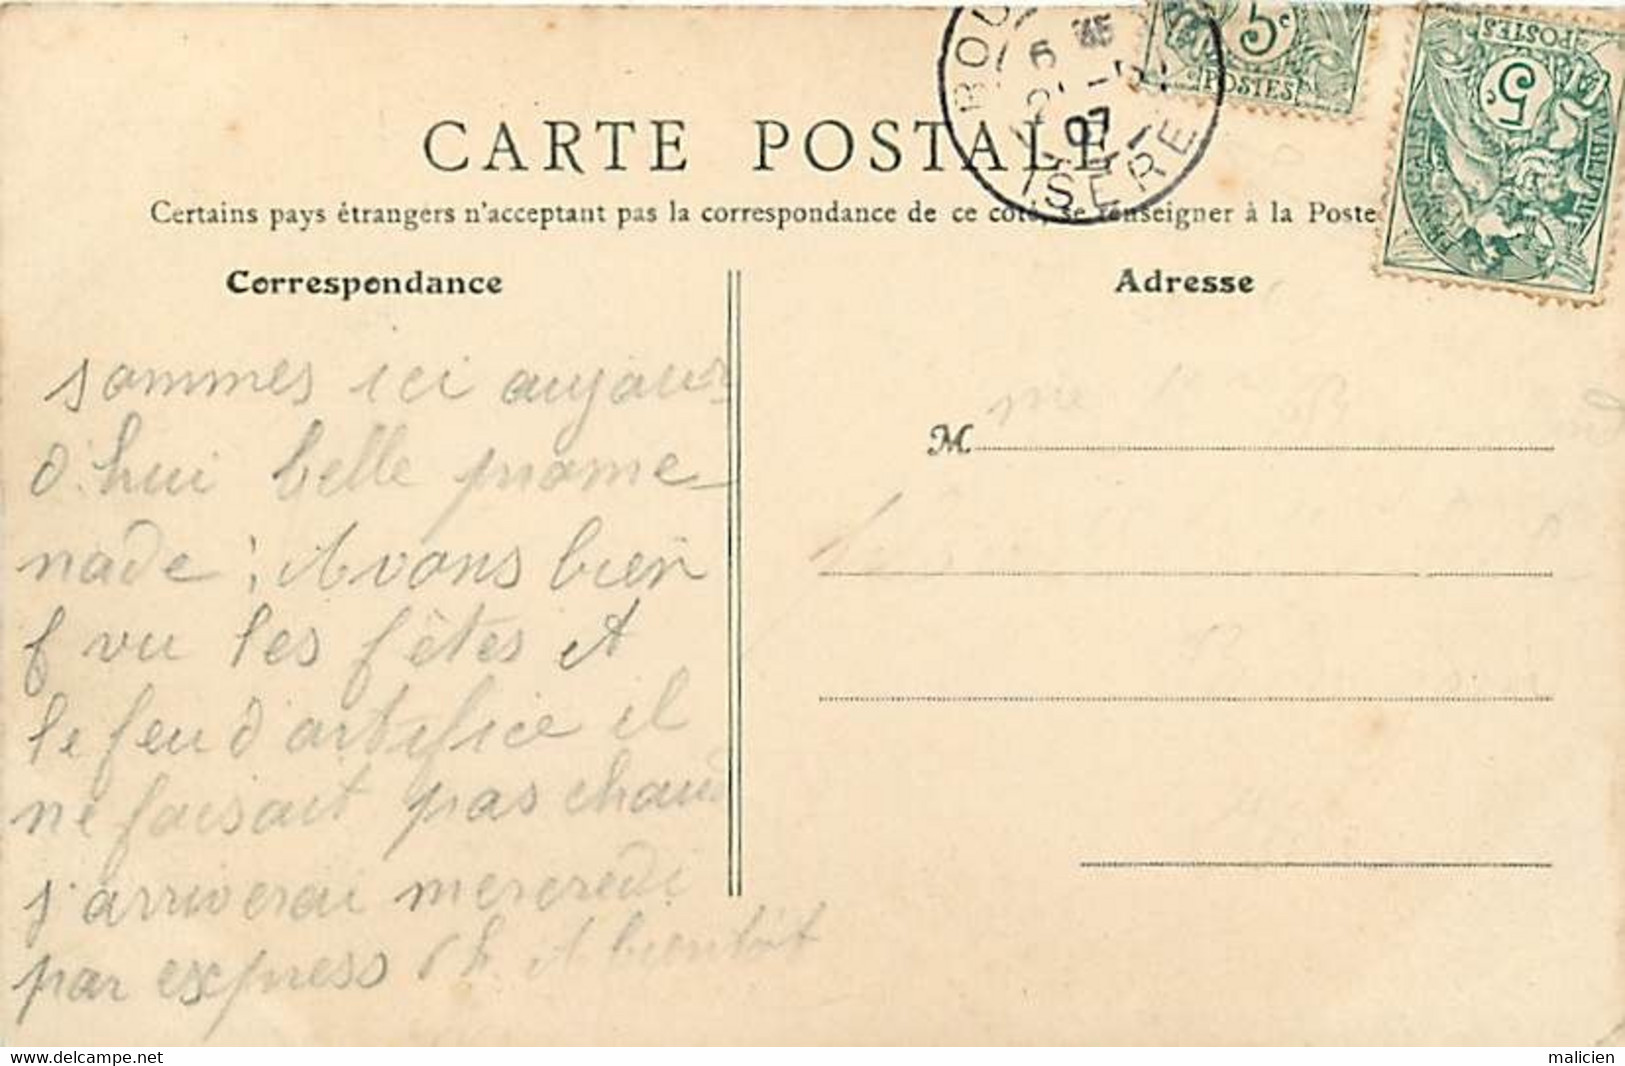 CARTE POSTALE
Certains pays étrangers n'acceptant pas la correspondance de ce côté, se renseigner à la Poste
Correspondance
Adresse
M
sommes ici aujour
d'hui belle prome
nade ; Avons bien
vu les fêtes et
le feu d'artifice il
ne faisait pas chaud
j'arriverai mercredi
par express 6 h. A bientôt
ISÈRE
07
5c
POSTES
5c
POSTES
RÉPUBLIQUE
FRANÇAISE
www.delcampe.net
malicien